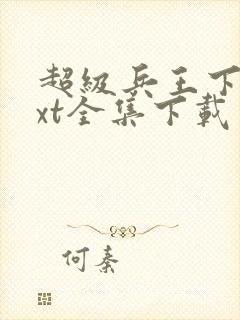 超级兵王下
xt全集下载
何秦